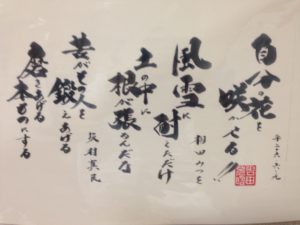 自分の花を
咲かせる!!
風雪に
耐えただけ
土の中に
根が張るんだな
相田みつを
苦がその人を
鍛えあげる
磨きあげる
本ものにする
坂村真民